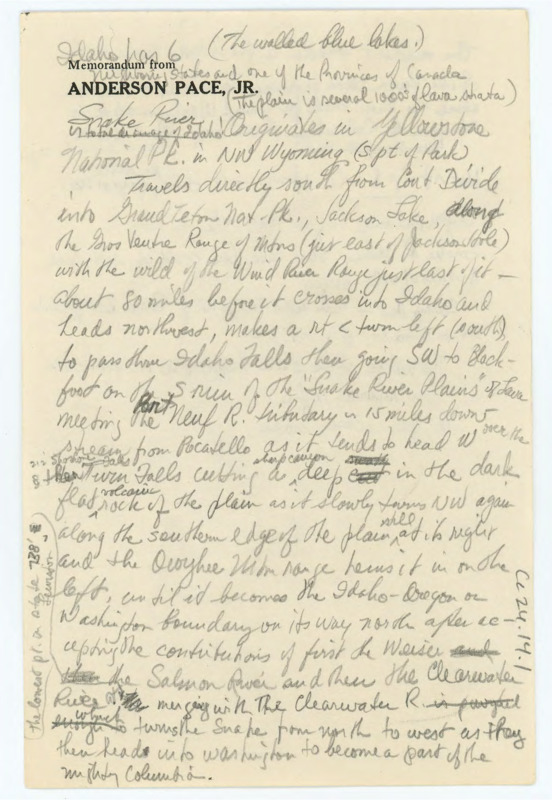 Idaho has 6 (The walled blue lakes.)
Memorandum from
neighboring states and one of the Provinces of Canada
ANDERSON PACE, JR.
(The plain is several 1000s' of lava strata)
Snake River Originates in Yellowstone
is total drainage of Idaho
National Pk. in NW Wyoming (S pt of Park)
Travels directly south from Cont Divide
into Grand Teton Nat-Pk., Jackson Lake, along
the Gros Ventre Range of Mtns (just east of Jackson Hole)
with the wild of the Wind River Range just east of it —
about 80 miles before it crosses into Idaho and
heads northwest, makes a rt < turn left (south),
to pass thru Idaho Falls then going SW to Black-
foot on the S run of the "Snake River Plains" of Lava
meeting the Port Neuf R. tributary in 15 miles down
stream from Pocatello as it tends to head W over the
Shoshone Falls
then Twin Falls cutting a steep canyon deep in the dark
flat volcanic rock of the plain as it slowly turns NW again
along the southern edge of the plain, still at its right
and the Owyhee Mtn range hems it in on the
left, until it becomes the Idaho-Oregon or
Washington boundary on its way north after ac-
cepting the contributions of first the Weiser and
then the Salmon River and then the Clearwater
River merging with The Clearwater R. is
enough which turns the Snake from north to west as they
then heads into Washington to become a part of the
mighty Columbia.
(the lowest pt. in state 738'
Lewiston
Cc 24.14.1